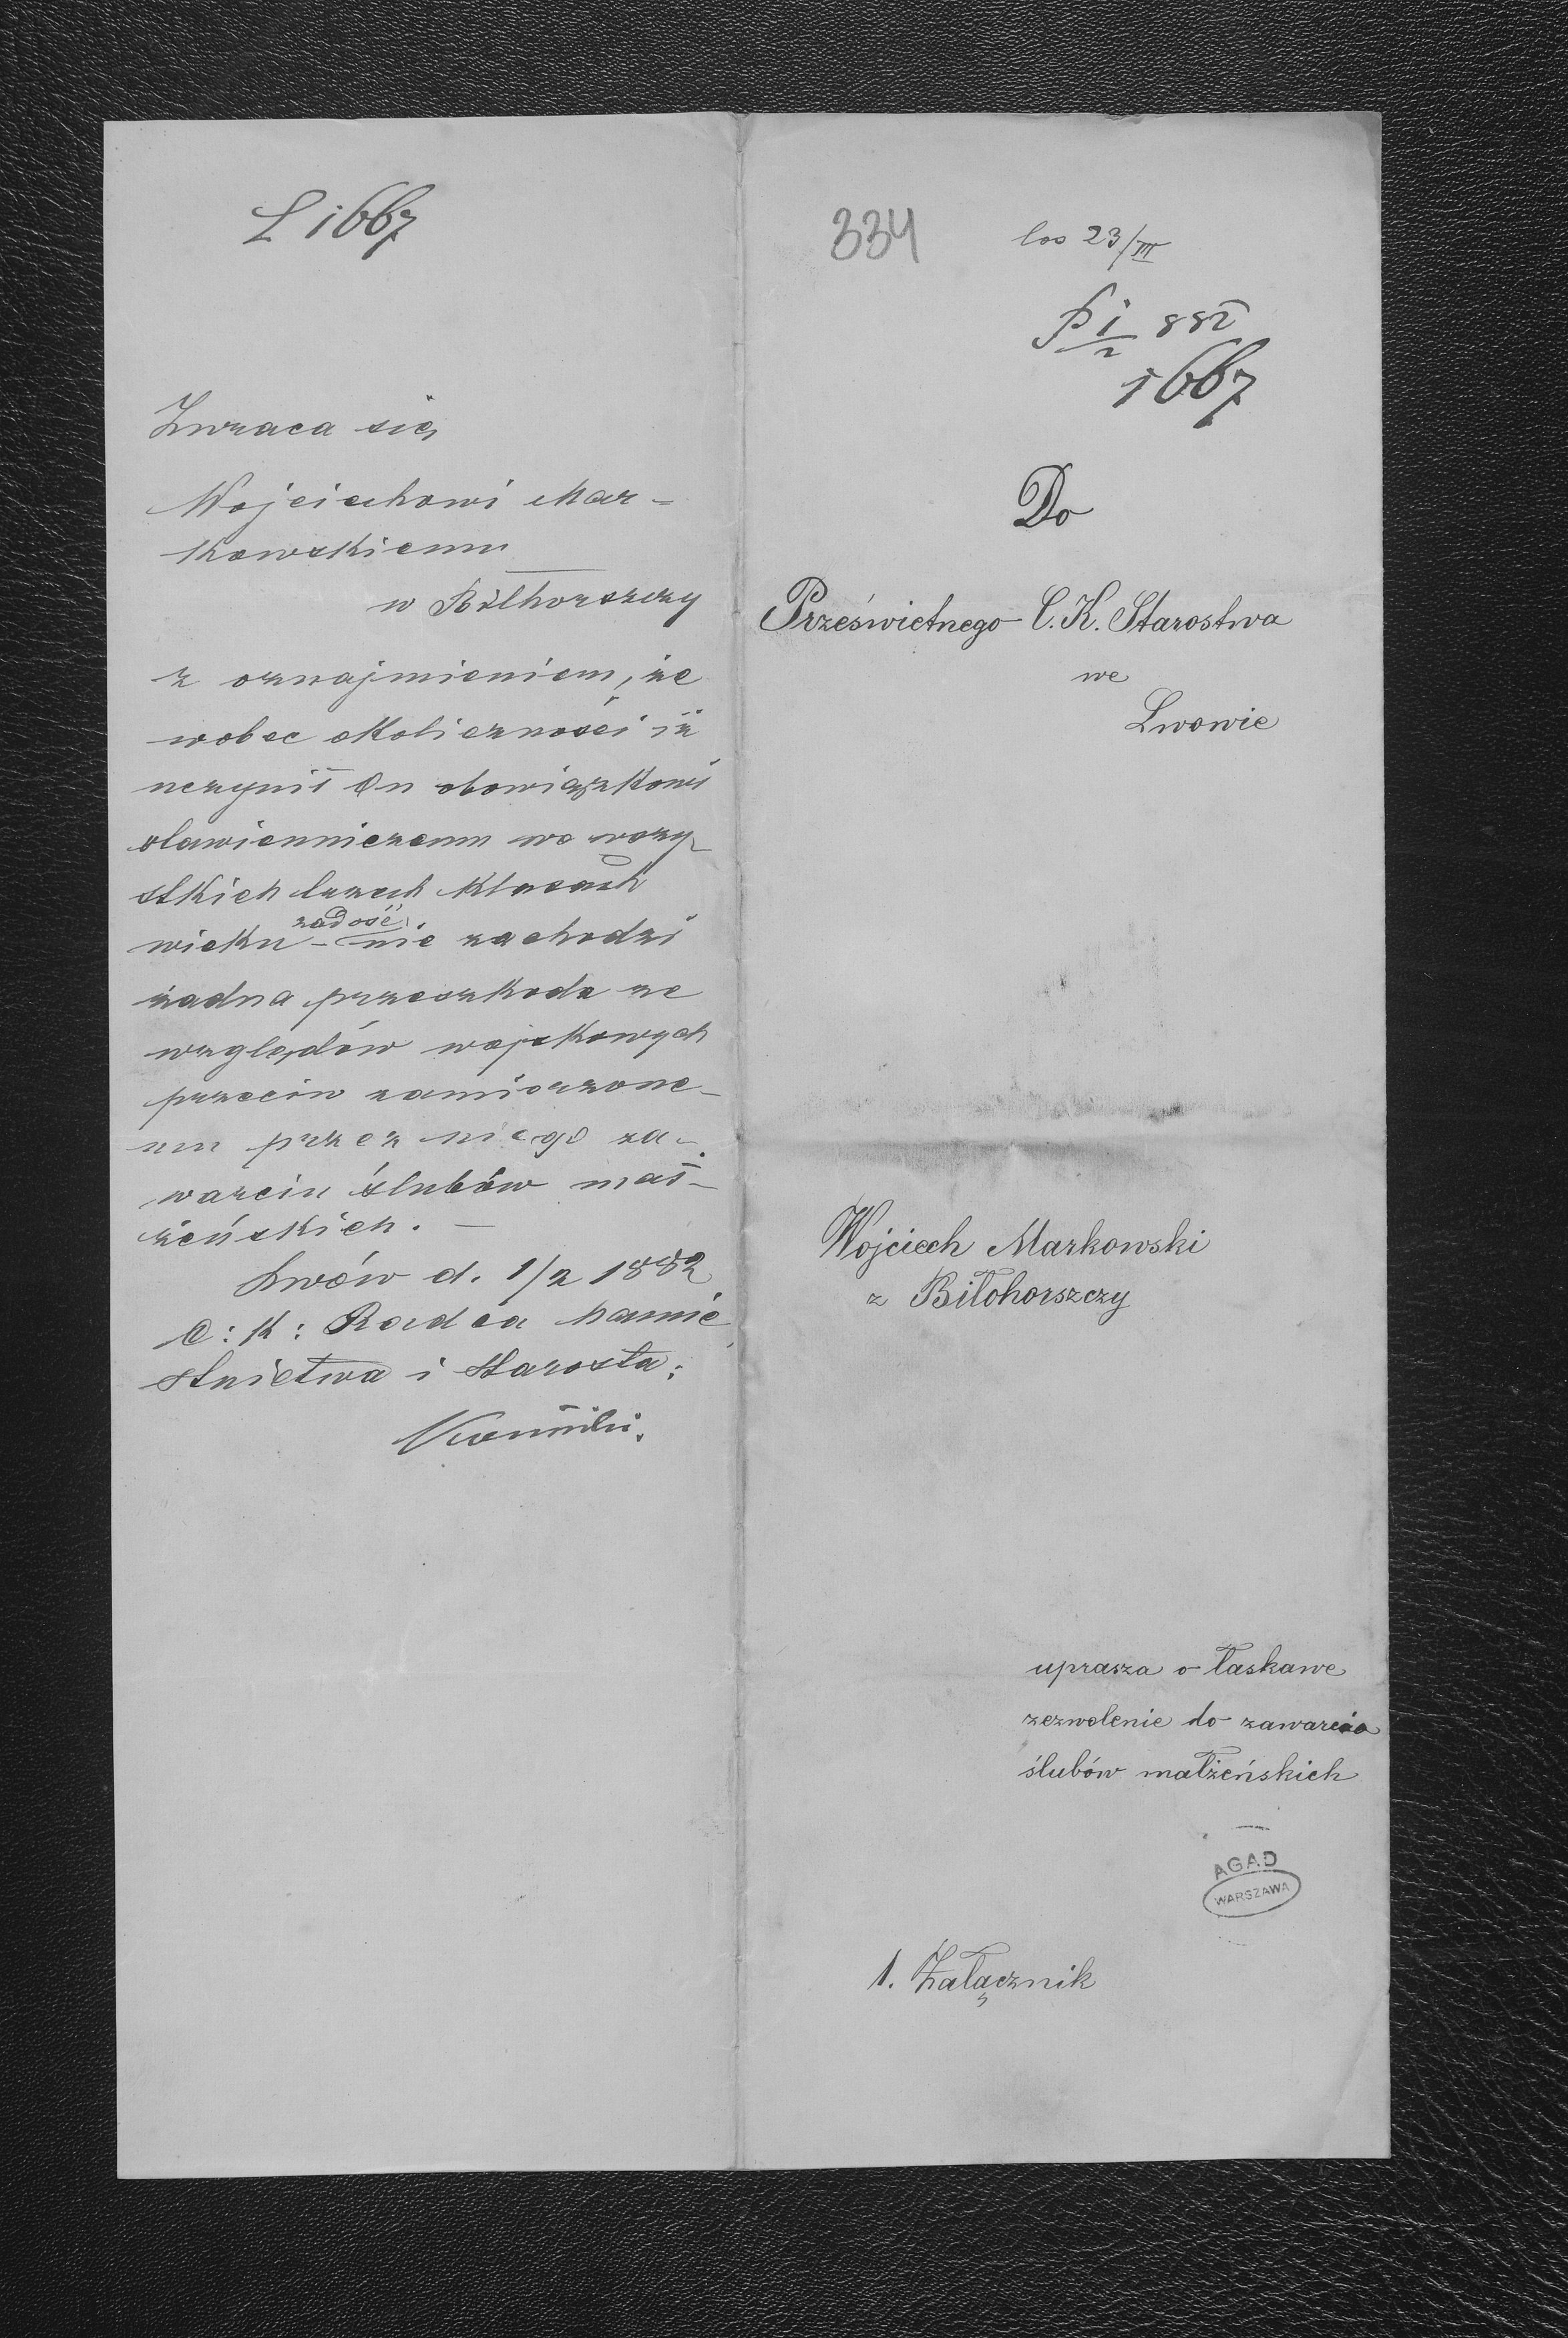 L 1667
Zwraca się
Wojciechowi Mar-
kowskiemu
w Biłhorszczy
z oznajmieniem, że
wobec okoliczności iż
uczynił On obowiązkowi
stawienniczemu we wszy-
stkich trzech klasach
zadość
wieku - nie zachodzi
żadna przeszkoda ze
względów wojskowych
przeciw zamierzone-
mu przez niego za-
warciu ślubów mał-
żeńskich. —
Lwów d. 1/2 1882
C: k: Radca Namie
stnictwa i Starosta:
334
los 23/III
1/2 882
1667
Do
Prześwietnego C. K. Starostwa
we
Lwowie
Wojciech Markowski
z Biłohorszczy
uprasza o łaskawe
zezwolenie do zawarcia
ślubów małżeńskich
AGAD
WARSZAWA
1. Załącznik